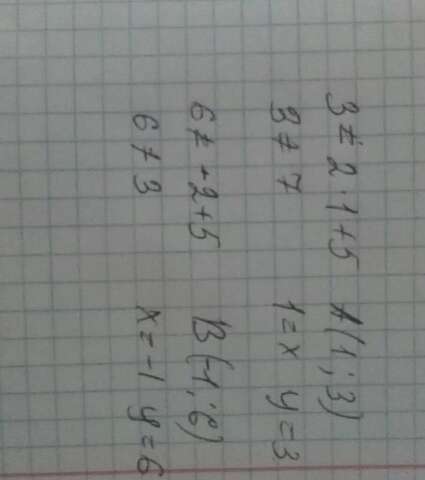 3 ≠ 2 · 1 + 5 A (1; 3)
3 ≠ 7 1 = x y = 3
6 ≠ -2 + 5 B (-1; 6)
6 ≠ 3 x = -1 y = 6